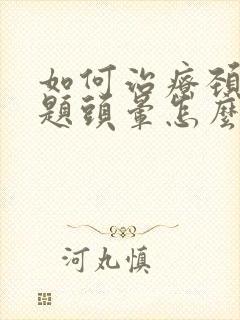 如何治療頸
題頭暈怎麼
河丸慎